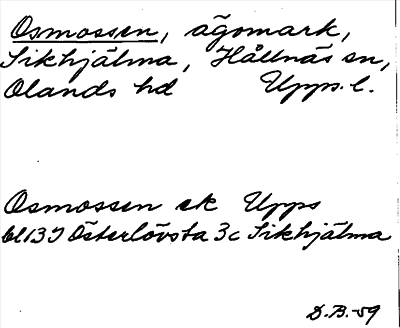 Osmossen, ägomark,
Sikhjälma, Hållnäs sn,
Olands hd Upps. l.
Osmossen ek Upps
bl 13I Österlövsta 3c Sikhjälma
D.B.-59